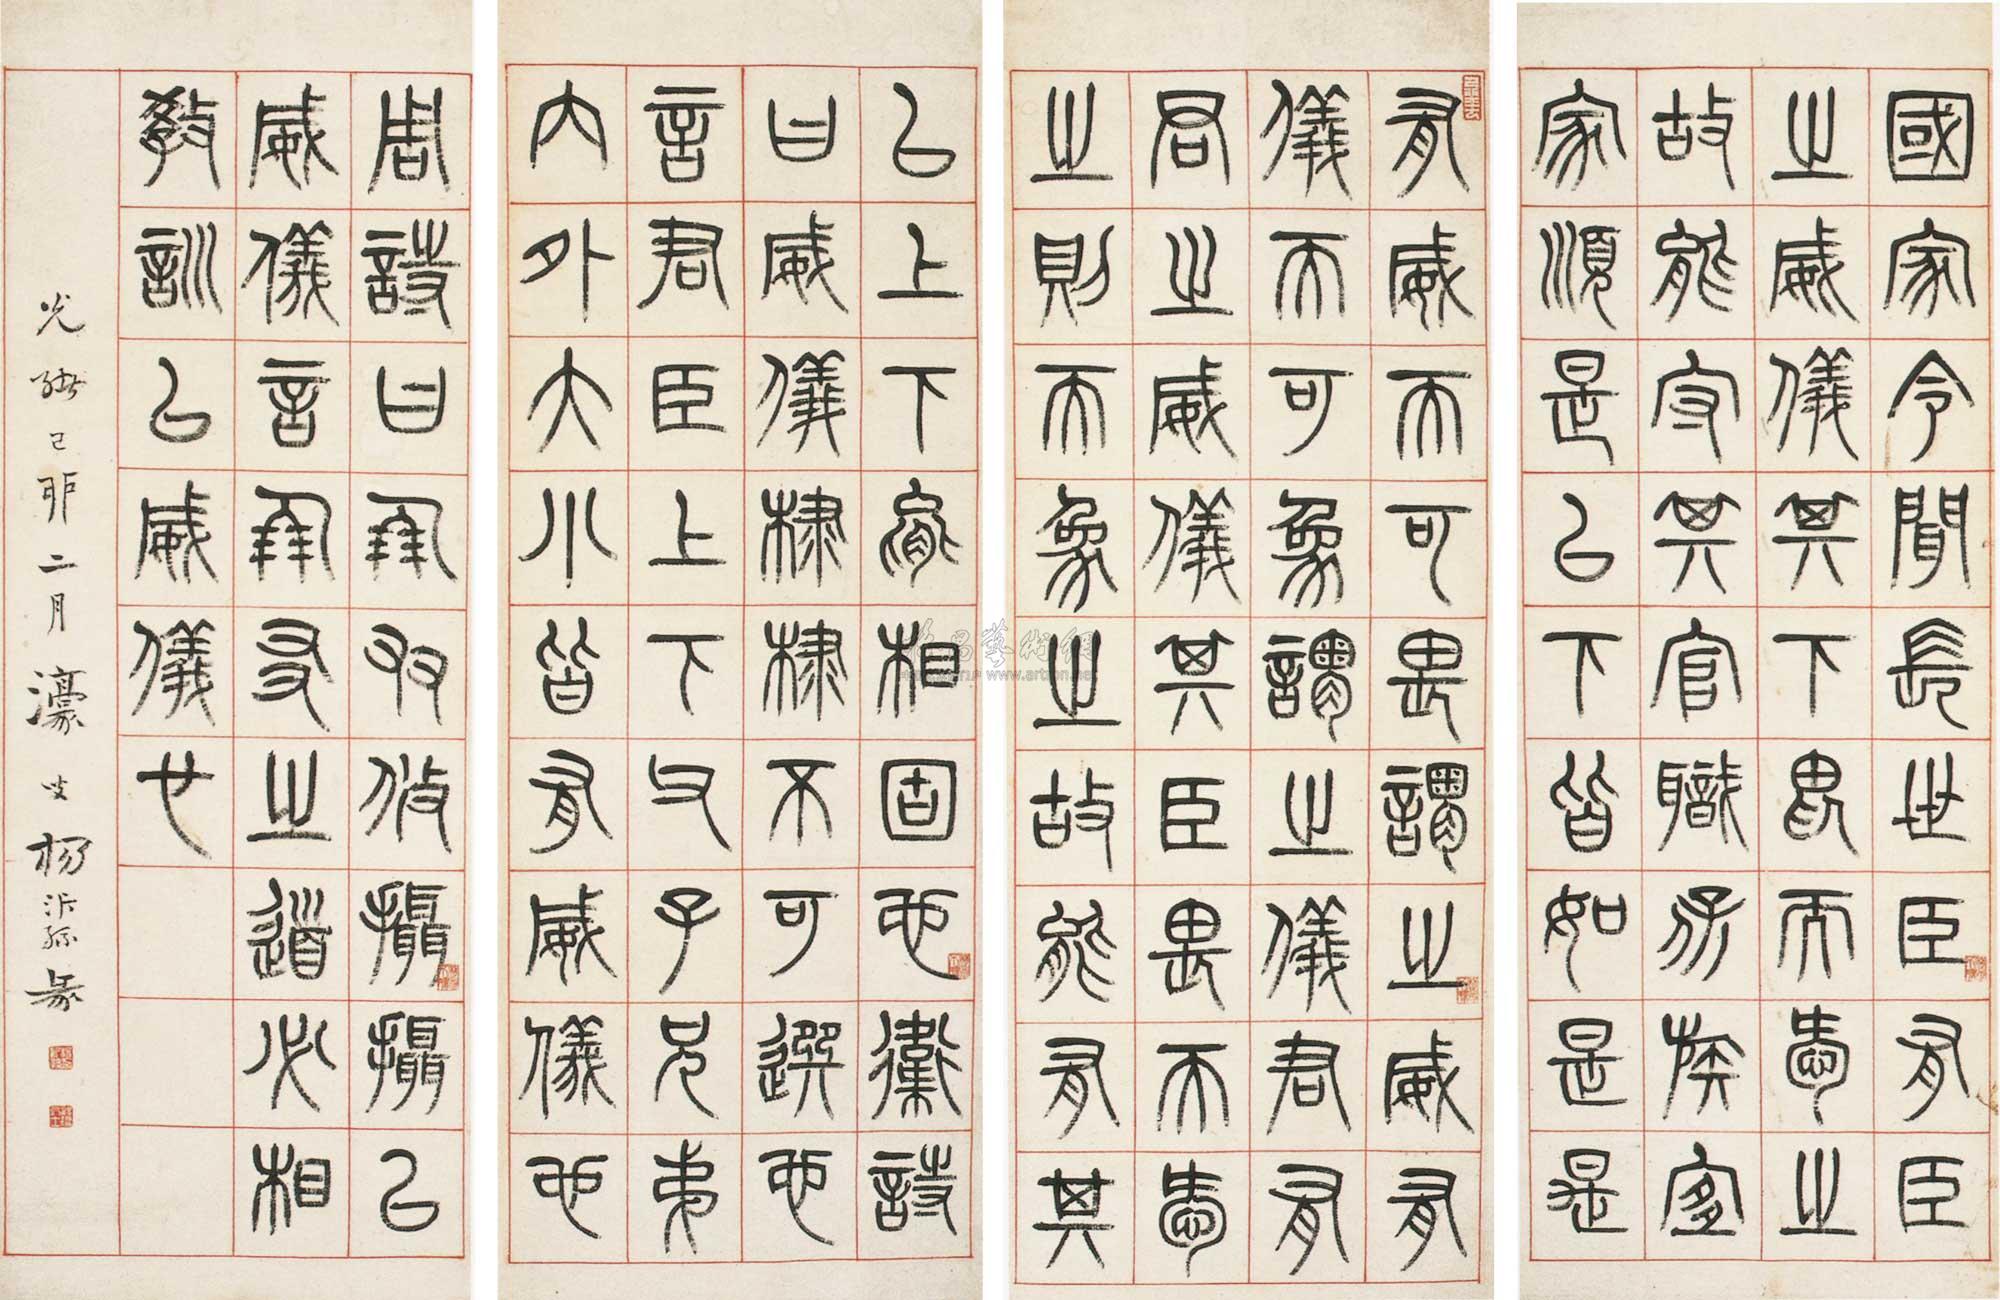 有威而可畏謂之威有
儀而可象謂之儀君有
君之威儀其臣畏而愛
之則而象之故能有其
國家令聞長世臣有臣
之威儀其下畏而愛之
故能守其官職保族宜
家順是以下皆如是是
以上下能相固也衛詩
曰威儀棣棣不可選也
言君臣上下父子兄弟
內外大小皆有威儀也
周詩曰朋友攸攝攝以
威儀言朋友之道必相
教訓以威儀也
光緒己卯二月濠叟楊沂孫篆
雅昌藝術網
www.artron.net